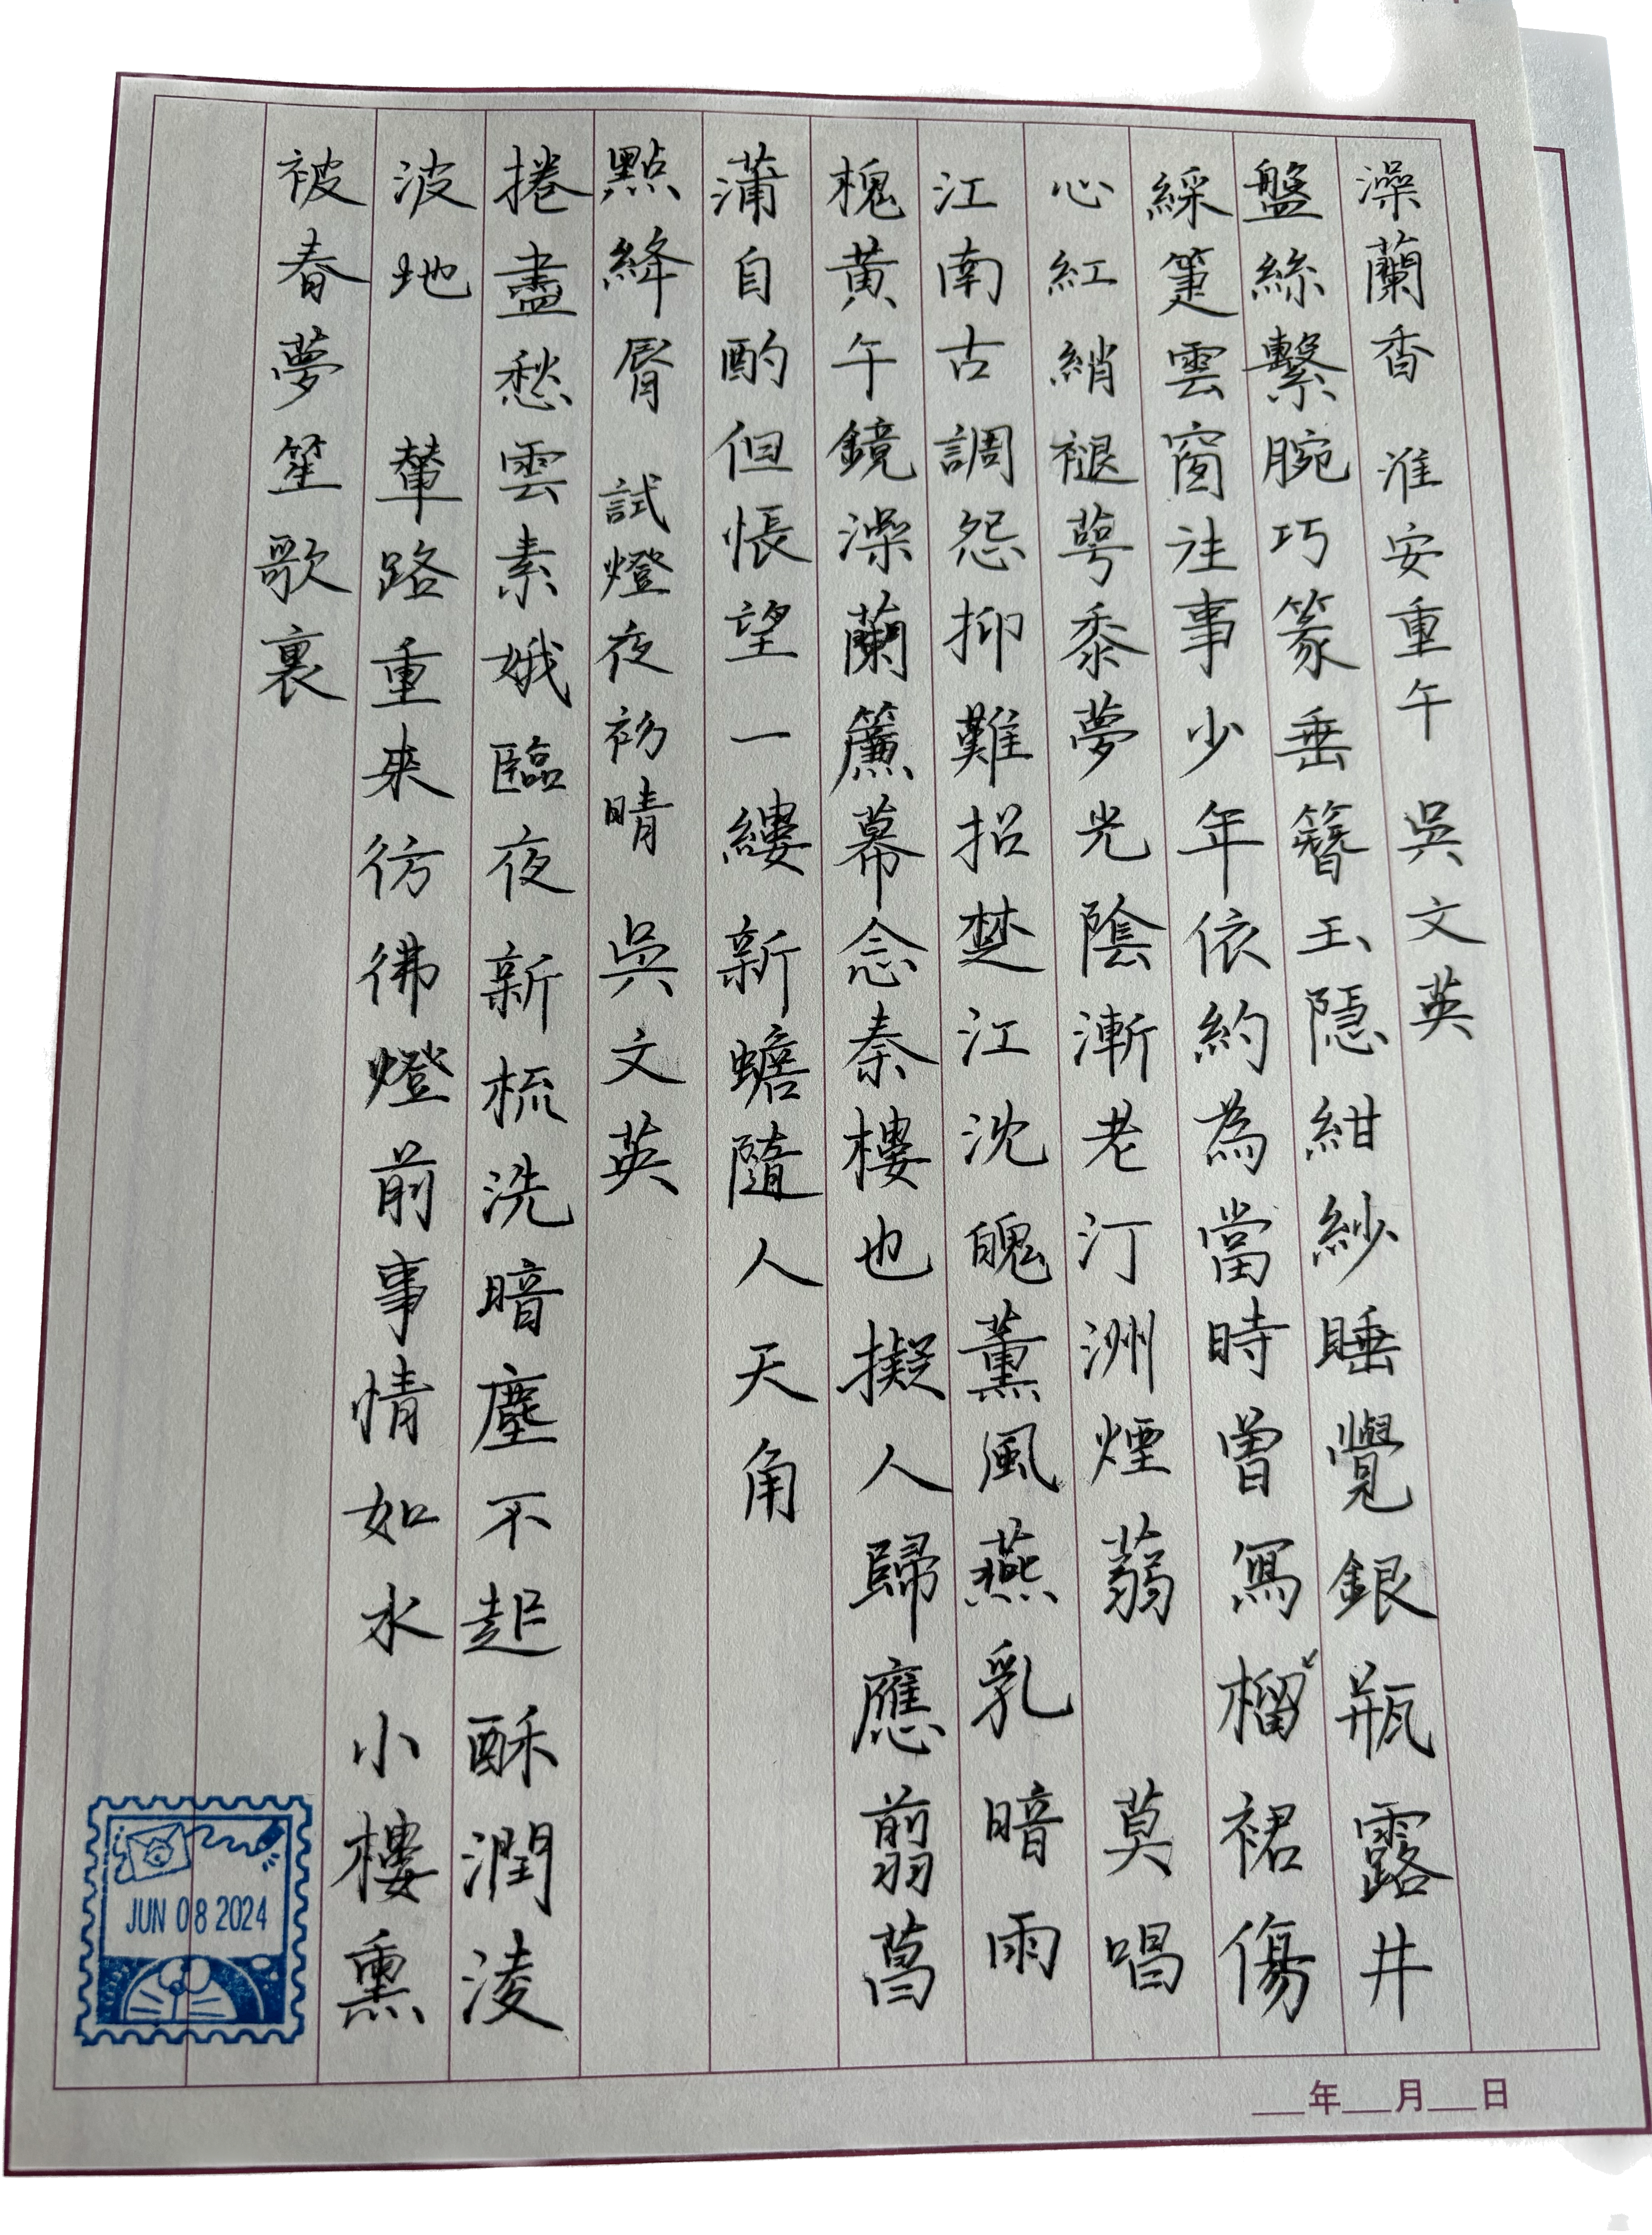 澡蘭香 淮安重午 吳文英
盤絲繫腕巧篆垂簪玉隱紺紗睡覺銀瓶露井
綵箑雲窗往事少年依約為當時曾寫榴裙傷
心紅綃褪萼黍夢光陰漸老汀洲煙蒻 莫唱
江南古調怨抑難招楚江沈魄薰風燕乳暗雨
槐黃午鏡澡蘭簾幕念秦樓也擬人歸應翦菖
蒲自酌但悵望一縷新蟾隨人天角
點絳脣 試燈夜初晴 吳文英
捲盡愁雲素娥臨夜新梳洗暗塵不起酥潤淩
波地 輦路重來彷彿燈前事情如水小樓熏
被春夢笙歌裏
JUN 08 2024
年 月 日